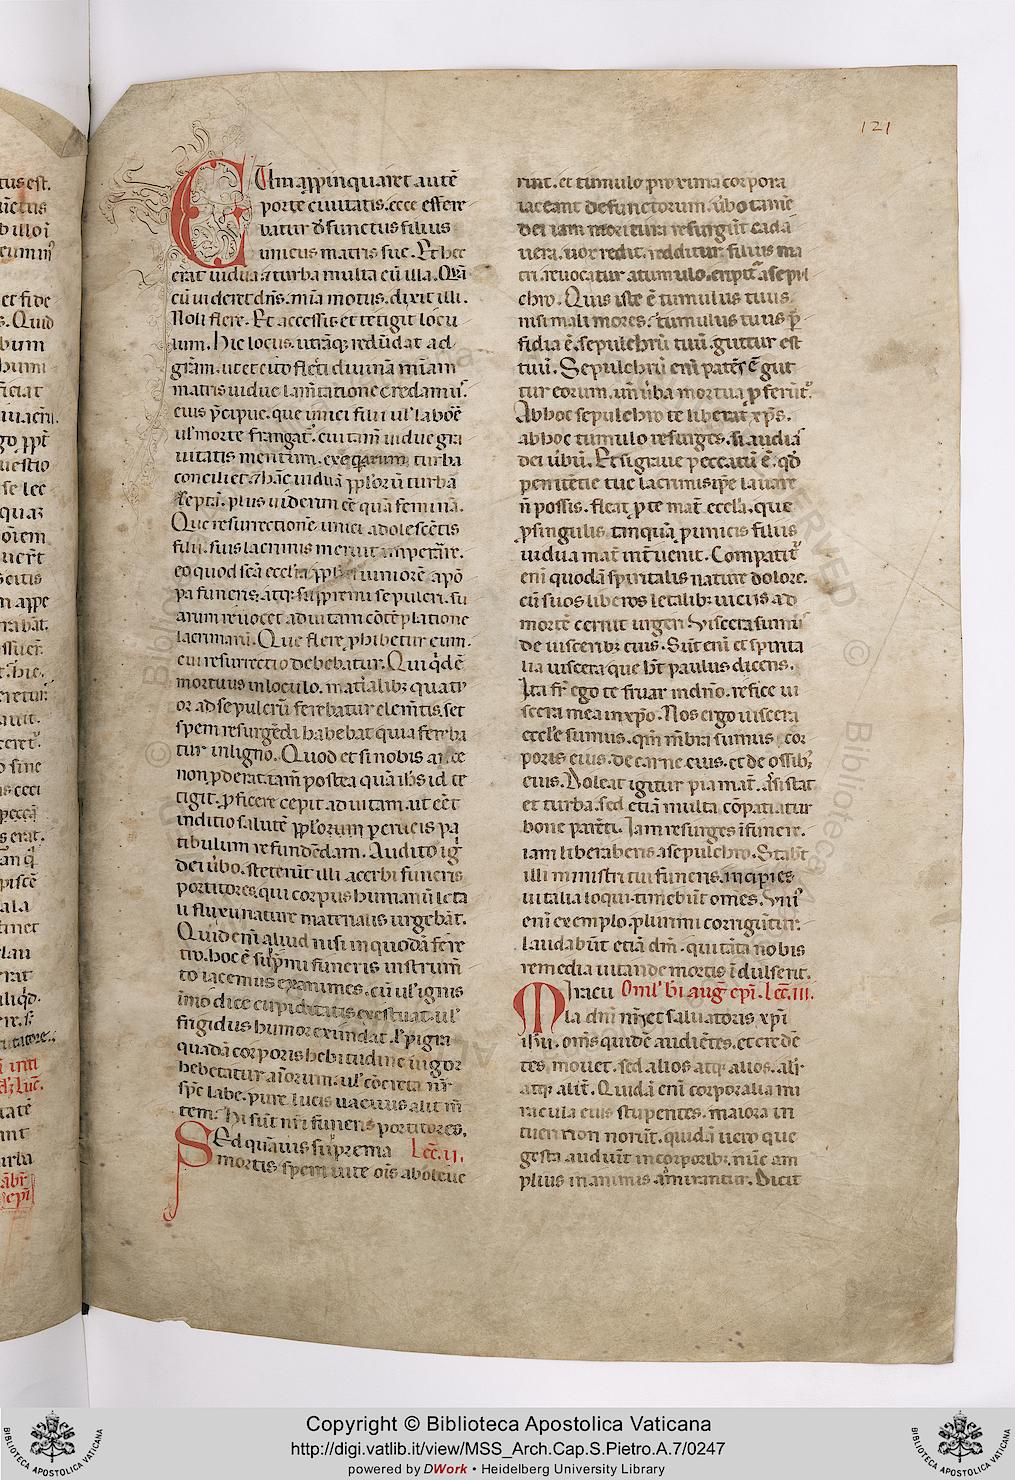 121
CUm appinquaret autē
porte ciuitatis. ecce effere
batur defunctus filius
unicus matris sue. Et hec
erat uidua ⁊ turba multa cū illa. Quā
cū uideret dn̄s. mīa motus. dixit illi.
Noli flere. Et accessit et tetigit locu
lum. Hic locus. utrāq; redūdat ad
grām. ut et cito flecti diuinā mīam
matris uidue lam̄tatione credamꝰ.
eius p̄cipue. que unici filii ul' labore
ul' morte frangat̉. cui tam̄ uidue gra
uitatis meritum. exequiarum turba
conciliet.
plus uiderim eē quā feminā.
Que resurrectionē unici adolescētis
filii. suis lacrimis meruit impetrare.
eo quod scā ecclīa iuniorē a pō
pa funeris. atq; suppremi sepulcri. su
arum reuocet ad uitam cōtēplatione
lacrimarū. Que flere phibetur eum.
cui resurrectio debebatur. Qui qd̄ē
mortuus in loculo. mat̉ialib; quatt
or ad sepulcrū ferebatur elem̄tis. set
spem resurgēdi habebat quia fereba
tur in ligno. Quod et si nobis ante
non pderat. tam̄ postea quā ih̄s id te
tigit. pficere cepit ad uitam. ut eēt
inditio salutē pplorum p crucis pa
tibulum refundēdam. Audito igͥ
dei ūbo. steterūt illi acerbi funeris
portitores. qui corpus humanū leta
li fluxu nature materialis urgebāt.
Quid em̄ aliud nisi in quodā fere
tro. hoc ē supp̄mi funeris instrum̄
to iacemus exanimes. cū ul' ignis
īmodice cupiditatis exestuat. ul'
frigidus humor exūdat. ⁊ pigra
quadā corporis hebitudine uigor
hebetatur aīorum. ul' cōcreta nr̄
sp̄c labe. pure lucis uacuus alit m̄
tem. Hi sūt nr̄i funeris portitores.
SEd quāuis suprema Lec̄. II.
mortis spem uite oīs aboleue
rint. et tumulo proxima corpora
iaceant defunctorum. ūbo tamē
dei iam moritura resurgūt cada
uera. uox redit. redditur filius ma
tri. reuocatur a tumulo. eripit̉ a sepul
chro. Quis iste ē tumulus tuus.
nisi mali mores. tumulus tuus p̄
fidia ē. sepulchrū tuū. guttur est
tuū. Sepulchrū em̄ patēs ē gut
tur eorum. uñ ūba mortua pferūt̉.
Ab hoc sepulchro te liberat xp̄s.
ab hoc tumulo resurges. si audias
dei ūbū. Et si graue peccatū ē. qd̄
penitētie tue lacrimis ip̄e lauare
n̄ possis. fleat p te mat̉ eccl̄a. que
p singulis tāquā p unicis filiis
uidua mat̉ int̉uenit. Compatit̉
em̄ quodā spiritalis nature dolore.
cū suos liberos letalib; uiciis ad
mortē cernit urgeri. Viscera sumꝰ
de uiscerib; eius. Sūt em̄ et spirita
lia uiscera que hr̄t paulus dicens.
Ita fr̄ ego te fruar in dn̄o. refice ui
scera mea in xp̄o. Nos ergo uiscera
eccl̄e sumus. qm̄ mēbra sumus cor
poris eius. de carne eius. et de ossib;
eius. Doleat igitur pia mat̉. assistat
et turba. sed etiā multa cōpatiatur
bone parēti. Iam resurges ī funere.
iam liberaberis a sepulchro. Stabūt
illi ministri tui funeris. incipies
uitalia loqui. timebūt om̄es. Uniꝰ
em̄ exemplo. plurimi corrigūtur.
Laudabūt etiā dm̄. qui tāta nobis
remedia uitande mortis īdulserit.
MIracu Oml' bī auḡ ep̄i. Lec̄. III.
la dn̄i nr̄i et saluatoris xp̄i
ih̄u. om̄s quidē audiētes. et credē
tes mouet. sed alios atq; alios. alit̉
atq; alit̉. Quidā em̄ corporalia mi
racula eius stupentes. maiora in
tueri non norūt. quidā uero que
gesta audiūt in corporib; nūc am
plius in animis amirantur. Dicit
Copyright © Biblioteca Apostolica Vaticana
http://digi.vatlib.it/view/MSS_Arch.Cap.S.Pietro.A.7/0247
powered by DWork • Heidelberg University Library